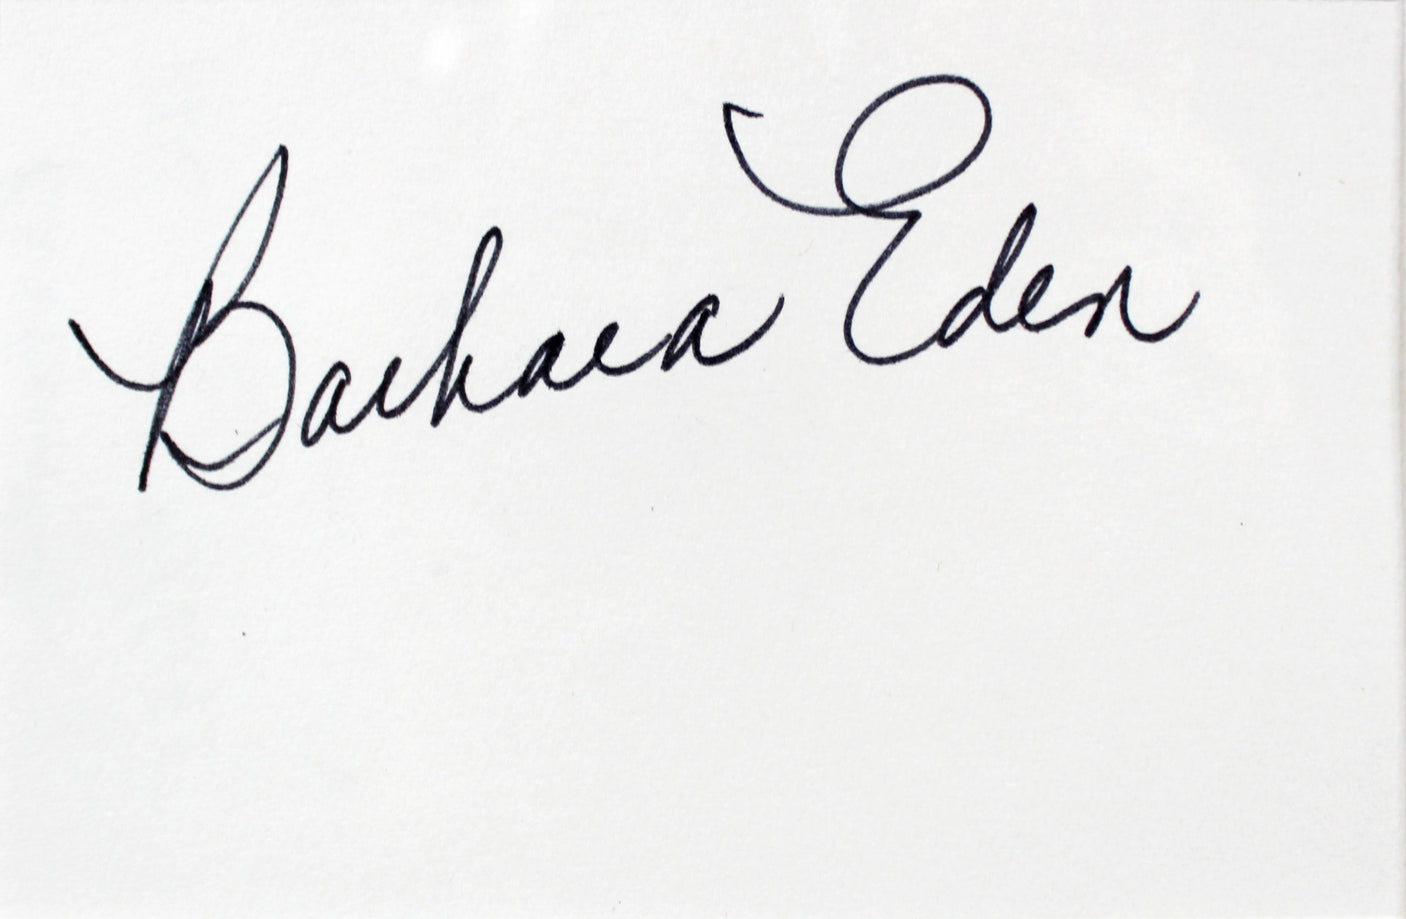 Barbara Eden